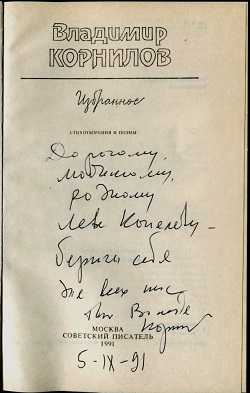 Владимир
КОРНИЛОВ
Избранное
СТИХОТВОРЕНИЯ И ПОЭМЫ
Дорогому,
любимому,
родному
Леве Копелеву –
береги себя
для всех нас
Твой Володя
Корнилов
МОСКВА
СОВЕТСКИЙ ПИСАТЕЛЬ
1991
5–IX–91